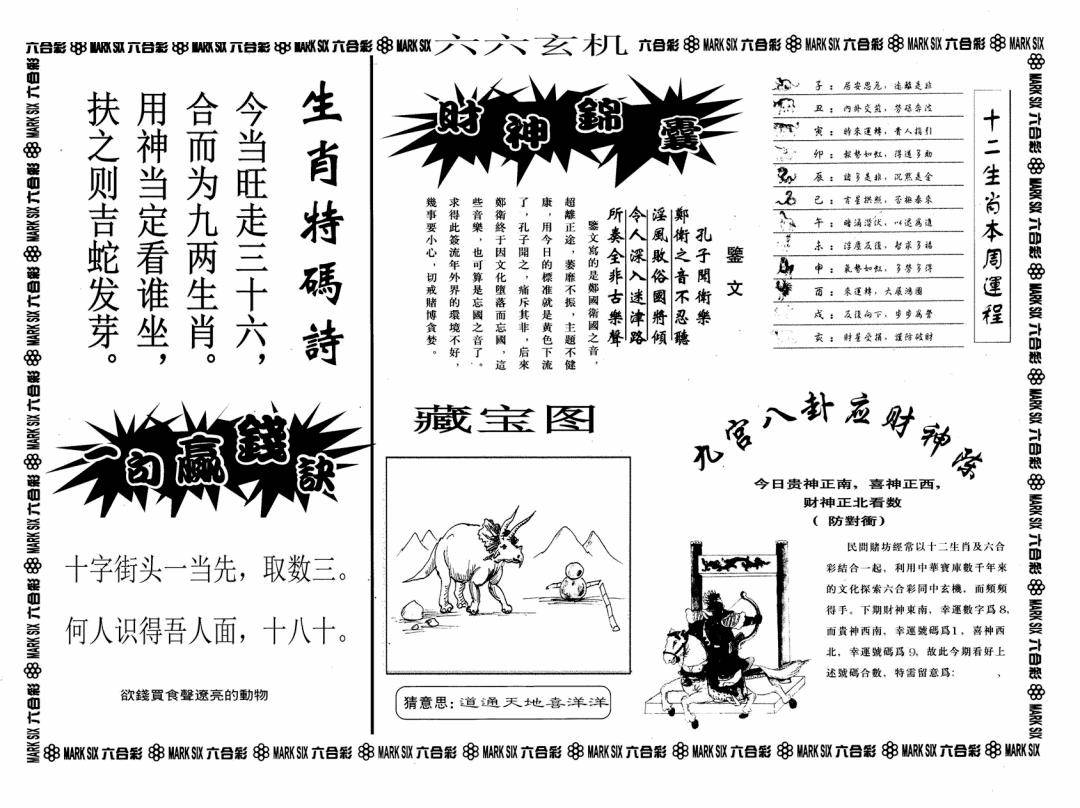 六合彩 MARK SIX 六合彩 MARK SIX 六合彩 MARK SIX 六合彩 MARK SIX
六六玄机
六合彩 MARK SIX 六合彩 MARK SIX 六合彩 MARK SIX 六合彩 MARK SIX
生肖特碼詩
今当旺走三十六，
合而为九两生肖。
用神当定看谁坐，
扶之则吉蛇发芽。
一句赢錢訣
十字街头一当先，取数三。
何人识得吾人面，十八十。
欲錢買食聲遼亮的動物
財神錦囊
鑒文
孔子聞衛樂
鄭衛之音不忍聽
淫風敗俗國將傾
令人深入迷津路
所奏全非古樂聲
鑒文寫的是鄭國衛國之音，
超離正途，萎靡不振，主題不健
康，用今日的標准就是黄色下流
了，孔子聞之，痛斥其非，后來
鄭衛終于因文化墮落而忘國，這
些音樂，也可算是忘國之音了。
求得此簽流年外界的環境不好，
幾事要小心，切戒賭博貪婪。
藏宝图
猜意思：道通天地喜洋洋
十二生尚本周運程
子：居安思危，遠離是非
丑：内外交煎，勞碌奔波
寅：時來運轉，貴人指引
卯：報勢如虹，得道多助
辰：諸多是非，沉默是金
巳：吉星拱照，否極泰來
午：暗涌潛伏，以退爲進
未：浮塵反復，智求多福
申：氣勢如虹，多勞多得
酉：來運轉，大展鴻圖
戌：反復向下，步步爲營
亥：財星受損，謹防破財
九宫八卦应财神踪
今日贵神正南，喜神正西，
财神正北看数
（防對衝）
民間賭坊經常以十二生肖及六合
彩結合一起，利用中華寶庫數千年來
的文化探索六合彩同中玄機，而頻頻
得手。下期財神東南，幸運數字爲8，
而貴神西南，幸運號碼爲1，喜神西
北，幸運號碼爲9，故此今期看好上
述號碼合數，特需留意爲：，
MARK SIX 六合彩 MARK SIX 六合彩 MARK SIX 六合彩 MARK SIX 六合彩 MARK SIX 六合彩 MARK SIX 六合彩 MARK SIX 六合彩 MARK SIX 六合彩 MARK SIX 六合彩 MARK SIX